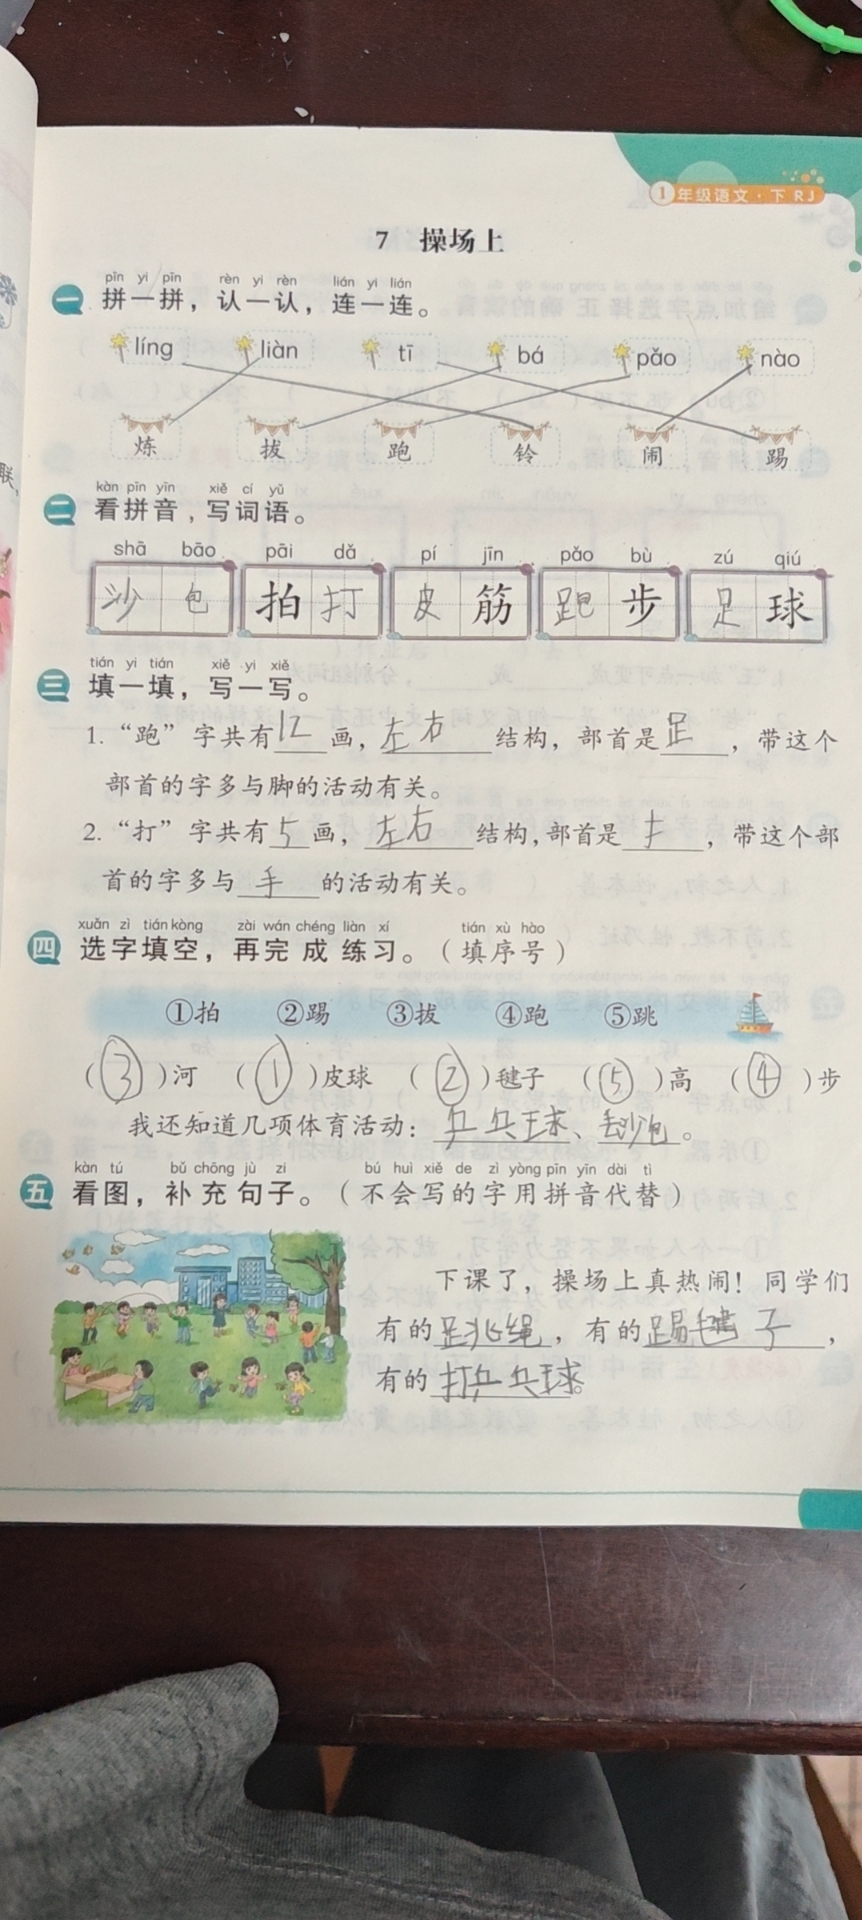 ①年级语文·下 RJ
7 操场上
pīn yi pīn rèn yi rèn lián yi lián
一 拼一拼，认一认，连一连。
líng liàn tī bá pǎo nào
炼 拔 跑 铃 闹 踢
kàn pīn yīn xiě cí yǔ
二 看拼音，写词语。
shā bāo pāi dǎ pí jīn pǎo bù zú qiú
沙包 拍打 皮筋 跑步 足球
tián yi tián xiě yi xiě
三 填一填，写一写。
1. “跑”字共有12画，左右结构，部首是𧾷，带这个
部首的字多与脚的活动有关。
2. “打”字共有5画，左右结构，部首是扌，带这个部
首的字多与手的活动有关。
xuǎn zì tián kòng zài wán chéng liàn xí tián xù hào
四 选字填空，再完成练习。（填序号）
①拍 ②踢 ③拔 ④跑 ⑤跳
（③）河 （①）皮球 （②）毽子 （⑤）高 （④）步
我还知道几项体育活动：乒乓球、丢沙包。
kàn tú bǔ chōng jù zi bú huì xiě de zì yòng pīn yīn dài tì
五 看图，补充句子。（不会写的字用拼音代替）
下课了，操场上真热闹！同学们
有的跳绳，有的踢毽子，
有的打乒乓球。